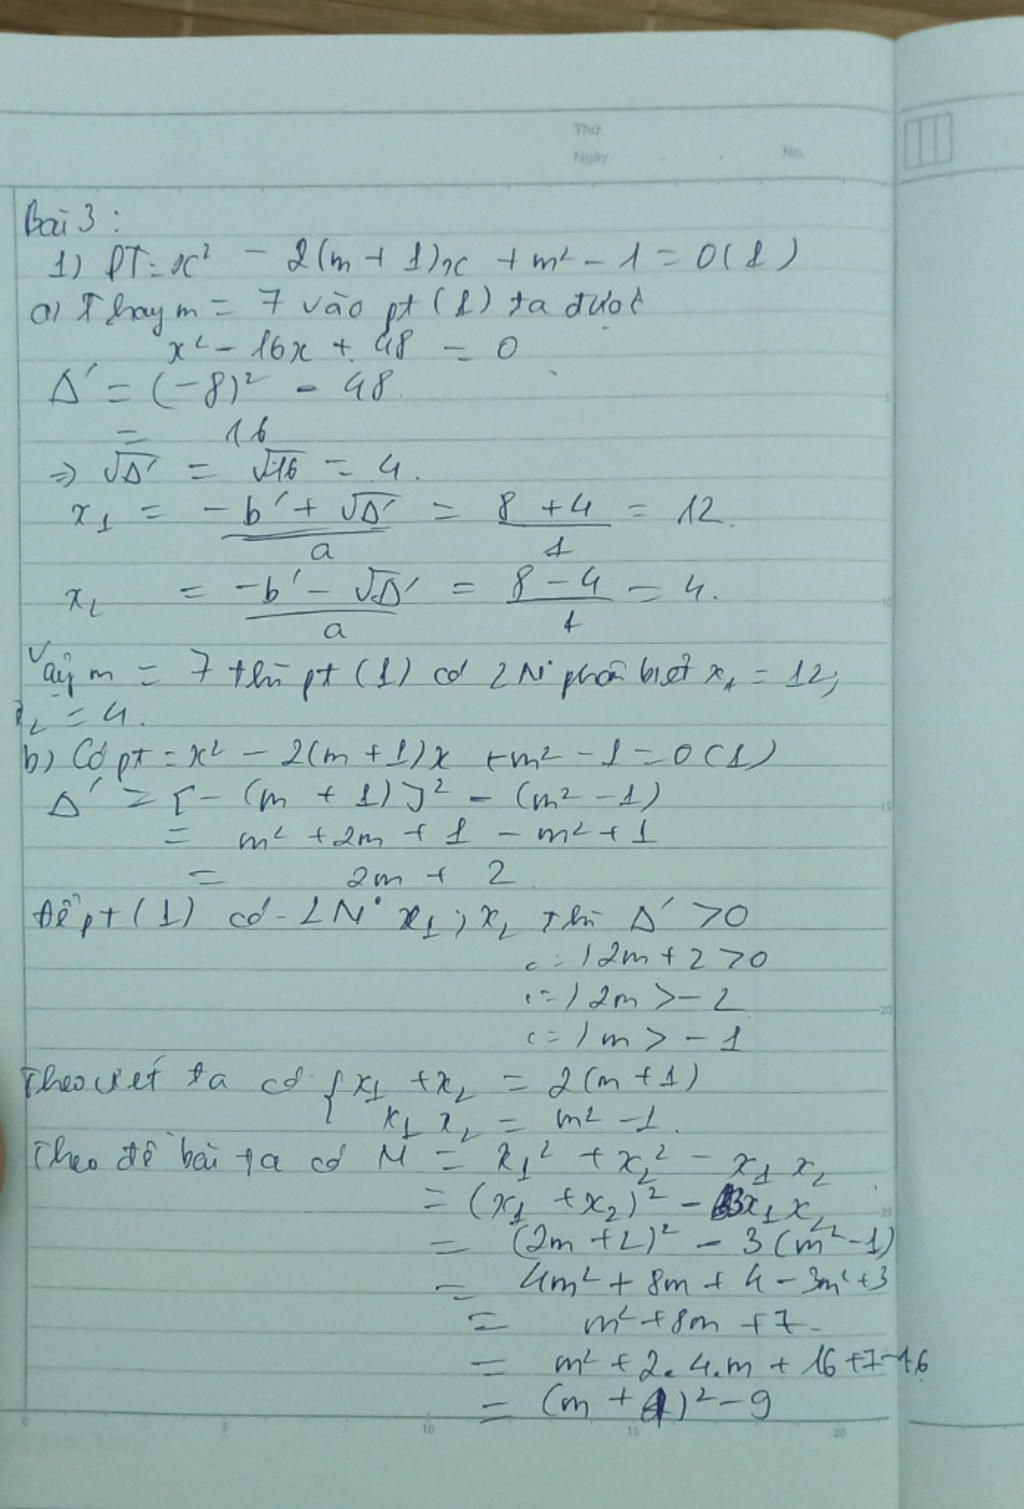 Thứ
Ngày
No.
Bài 3 :
1) PT: x² - 2(m + 1)x + m² - 1 = 0 (1)
a) Thay m = 7 vào pt (1) ta được
x² - 16x + 48 = 0
Δ' = (-8)² - 48
= 16
=> √Δ' = √16 = 4.
x₁ = (-b' + √Δ')/a = (8 + 4)/1 = 12.
x₂ = (-b' - √Δ')/a = (8 - 4)/1 = 4.
Vậy m = 7 thì pt (1) có 2 N° phân biệt x₁ = 12;
x₂ = 4.
b) Có pt: x² - 2(m + 1)x + m² - 1 = 0 (1)
Δ' = [-(m + 1)]² - (m² - 1)
= m² + 2m + 1 - m² + 1
= 2m + 2
Để pt (1) có 2 N° x₁ ; x₂ thì Δ' > 0
<=> 2m + 2 > 0
<=> 2m > -2
<=> m > -1
Theo viét ta có { x₁ + x₂ = 2(m + 1)
x₁ x₂ = m² - 1.
Theo đề bài ta có M = x₁² + x₂² - x₁ x₂
= (x₁ + x₂)² - 3x₁ x₂
= (2m + 2)² - 3(m² - 1)
= 4m² + 8m + 4 - 3m² + 3
= m² + 8m + 7.
= m² + 2.4.m + 16 + 7 - 16
= (m + 4)² - 9
0 5 10 15 20